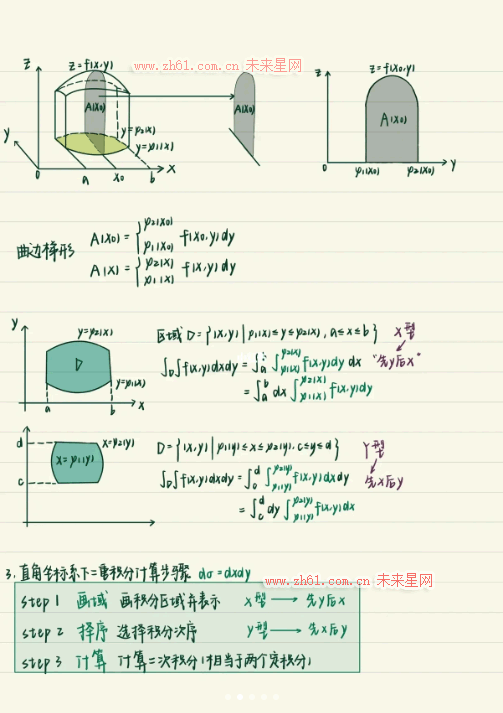 www.zh61.com.cn 未来星网
z=f(x,y)
z
A(x0)
A(x0)
y=φ2(x)
y=φ1(x)
y
0 a x0 b x
z
z=f(x0,y)
A(x0)
0 φ1(x0) φ2(x0) y
曲边梯形
A(x0)=∫φ1(x0)φ2(x0) f(x0,y)dy
A(x)=∫φ1(x)φ2(x) f(x,y)dy
y
y=φ2(x)
D
y=φ1(x)
a b x
区域 D={(x,y)|φ1(x)≤y≤φ2(x), a≤x≤b} X型
∫D∫f(x,y)dxdy=∫ab∫φ1(x)φ2(x)f(x,y)dy dx "先y后x"
=∫ab dx∫φ1(x)φ2(x)f(x,y)dy
d
x=φ2(y)
x=φ1(y)
c
D={(x,y)|φ1(y)≤x≤φ2(y), c≤y≤d} Y型
∫D∫f(x,y)dxdy=∫cd∫φ1(y)φ2(y)f(x,y)dxdy 先x后y
=∫cd dy∫φ1(y)φ2(y)f(x,y)dx
3.直角坐标系下二重积分计算步骤 dσ=dxdy
www.zh61.com.cn 未来星网
step 1 画域 画积分区域并表示 X型→先y后x
step 2 择序 选择积分次序 Y型→先x后y
step 3 计算 计算二次积分(相当于两个定积分)